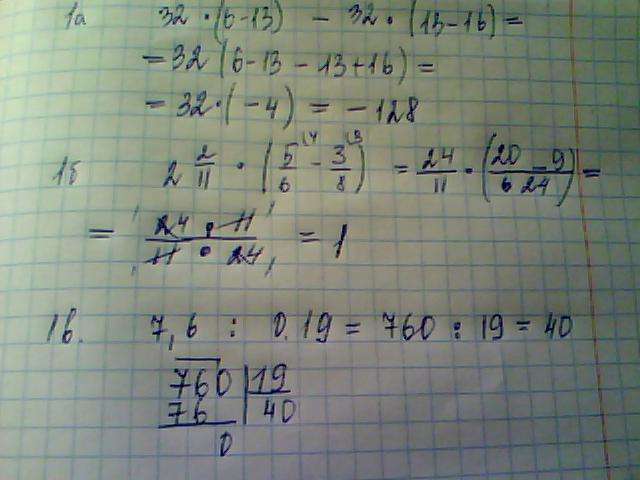 1а 32 · (6-13) - 32 · (13-16) =
= 32 (6-13 - 13+16) =
= 32 · (-4) = -128
1б 2 2/11 · (5/6 - 3/8) = 24/11 · (20 - 9 / 24) =
= 24 · 11 / 11 · 24 = 1
1в. 7,6 : 0.19 = 760 : 19 = 40
760 | 19
76 40
0